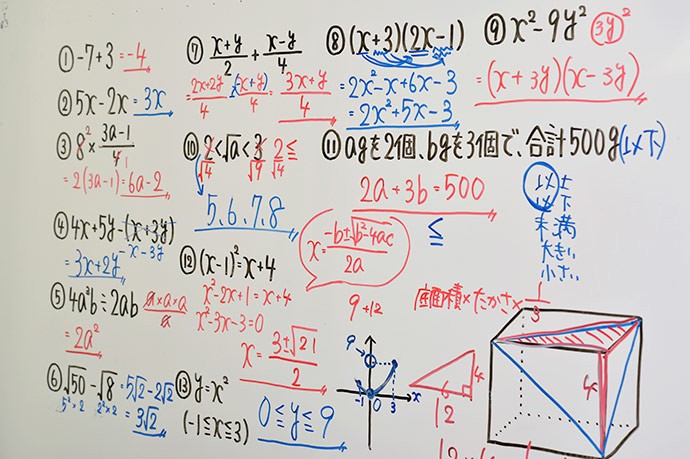 ① -7+3 = -4
② 5x-2x = 3x
③ 8² × 3a-1/4 1
= 2(3a-1) = 6a-2
④ 4x+5y-(x+3y)
= 3x+2y -x-3y
⑤ 4a²b÷2ab a×a×a/a
= 2a²
⑥ √50-√8 = 5√2-2√2
5²×2 2²×2 = 3√2
⑦ x+y/2 + x-y/4
= 2x+2y/4 + (x-y)/4 = 3x+y/4
⑩ 2<√a<3 2≦
√4 √9 √4
5、6、7、8
⑫ (x-1)²=x+4
x²-2x+1=x+4
x²-3x-3=0
x= 3±√21/2
⑬ y=x²
(-1≦x≦3) 0≦y≦9
⑧ (x+3)(2x-1)
= 2x²-x+6x-3
= 2x²+5x-3
⑨ x²-9y² 3y²
= (x+3y)(x-3y)
⑪ agを2個、bgを3個で、合計500g(以下)
2a+3b=500
≦
以上
以下
未満
大きい
小さい
x= -b±√b²-4ac/2a
9+12
9
-1 0 3 x
底面積×たかさ×1/3
4
12
4